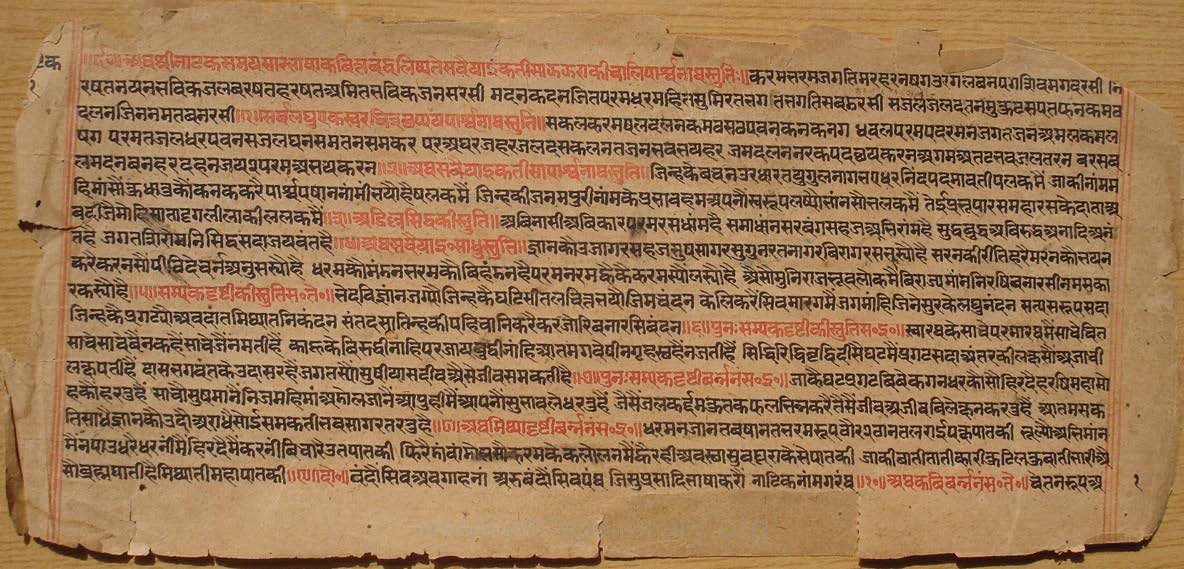 टक
१
॥अथश्रीनाटकसमयसारभाषाकवित्तबंदलिष्यतेसवैयाइकतीसाऊकराकीचालिपार्श्वनाथस्तुतिः॥करमभरमजगतिमरहरनषगउरगलषनपगशिवमगदरसी नि
रषतनयनभविकजलबरषतहरषतअमितभविकजनसरसी मदनकदनजितपरमधरमहितसुमिरतभगतभगतिसबडरसी सजलजलदतनमुकुटसपतफनकमठ
दलनजिननमतबनरसी॥१॥सर्वलघुएकस्वरचित्रछप्पयपार्श्वनाथस्तुति॥सकलकरमषलदलनकमठसठपवनकनकनग धवलपरमपदरमनजगतजनअमलकमल
षग परमतजलधरपवनसजलघनसमतनसमकर परअघरजहरजलदसकलजननतभवभयहर जमदलननरकपदछयकरनअगमअतटभवजलतरन बरसब
लमदनबनहरदहनजयजयपरमअभयकरन॥२॥अथसवैयाइकतीसापार्श्वनाथस्तुति॥जिन्हकैबचनउरधारतजुगुलनागभएधरनिंदपदमावतीपलकमैं जाकीनांमम
हिमांसौंकुधातुकोकनककरैपार्श्वपषाननांमीभयौहैषलकमैं जिन्हकीजनमपुरीनांमकेप्रभावहमअपनौंसरूपलष्योभांनसोभलकमैं तेईप्रभुपारसमहारसकेदाताअ
बदीजैमोहिसातादृगलीलाकीललकमैं॥३॥अडिल्लसिद्धकीस्तुति॥अबिनासीअविकारपरमरसधांमहै समाधांनसरवंगसहजअभिरामहै सुद्धबुद्धअविरुद्धअनादिअनं
तहै जगतशिरोमनिसिद्धसदाजयवंतहै॥४॥अथसवैयाइ०साधुस्तुति॥ज्ञानकौउजागरसहजसुषसागरसुगुनरतनागरबिरागरसभस्यौहै सरनकीरीतिहरैमरनकौभैन
करैकरनसौंपीठिदेचर्नअनुसस्यौहै धरमकौमंडनभरमकौबिहंडनहैपरमनरमह्वैकैकरमस्योंलस्यौहै अैसोमुनिराजभुवलोकमैबिराजमांननिरषिबनारसीनमसका
रकस्यौहै॥५॥सम्यकदृष्टीकीस्तुतिस०ते०॥भेदविज्ञांनजग्यौजिन्हकैघटिसीतलचित्तभयौजिमचंदन केलिकरैसिवमारगमैजगमांहिजिनेसुरकेलघुनंदन सत्यसरूपसदा
जिन्हकैप्रगट्योअवदातमिथ्यातनिकंदन संतदसातिन्हकीपहिचांनिकरैकरजोरिबनारसिबंदन॥६॥पुनःसम्यकदृष्टीकीस्तुतिस०इ०॥स्वारथकेसाचेपरमारथमैंसाचेचित
साचेसाचेबैनकहैंसाचेजैनमतीहैं काहूकेविरुद्धीनाहिपरजायबुद्धीनांहिआतमगवेषीनगृहस्थहैंनजतीहैं सिद्धिरिद्धिवृद्धिदीसैघटमैंप्रगटसदाअंतरकीलछसौंअजाची
लछपतीहैं दासभगवंतकेउदासरहैंजगतसौंसुषीयासदीवअैसेजीवसमकतीहै॥७॥पुनःसम्यकदृष्टीबर्ननंस०इ०॥जाकैघटप्रगटबिबेकगनधरकौसौहिरदैहरषिमहामो
हकौंहरतुहैं साचौसुषमांनैनिजमहिमांअडोलजानैआपुहीमैआपनौसुभावलेधरतुहैं जैसेंजलकर्द्दमकुतकफलभिन्नकरैतैसैंजीवअजीवबिलछनकरतुहैं आतमसक
तिसाधैज्ञानकौउदौअराधैसोईसमकतीभवसागरतरतुहै॥८॥अथमिथ्यादृष्टीबर्ननंस०इ०॥धरमनजानतबषानतभरमरूपठौरठौरठानतलराईपक्षपातकी भूल्योअभिमान
मैंनपाउधरैधरनीमैहिरदैमैंकरनीबिचारैउतपातकी फिरैडांवांडोलसौकरमकेकलोलनमैंह्वैरहीअवस्थासुबघूराकैसेपातकी जाकीछातीतातीकारीकुटिलकुबातीभारीअै
सोब्रह्मघातीहैमिथ्यातीमहापातकी॥९॥दोहा॥बंदौंसिवअवगाहनां अरुबंदौंसिवपंथ जिसुप्रसादिभाषाकरौं नाटिकनांमगरंथ॥१०॥अथकबिबर्ननंस०ते०॥चेतनरूपअ
१